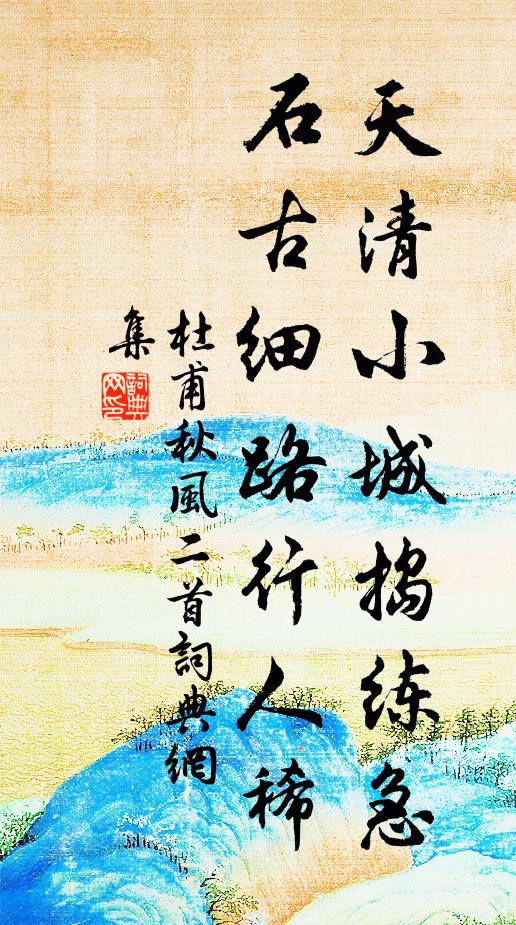 天清小城搗练急
石古细路行人稀
杜甫秋風二首詞典網
集
詞典
网印